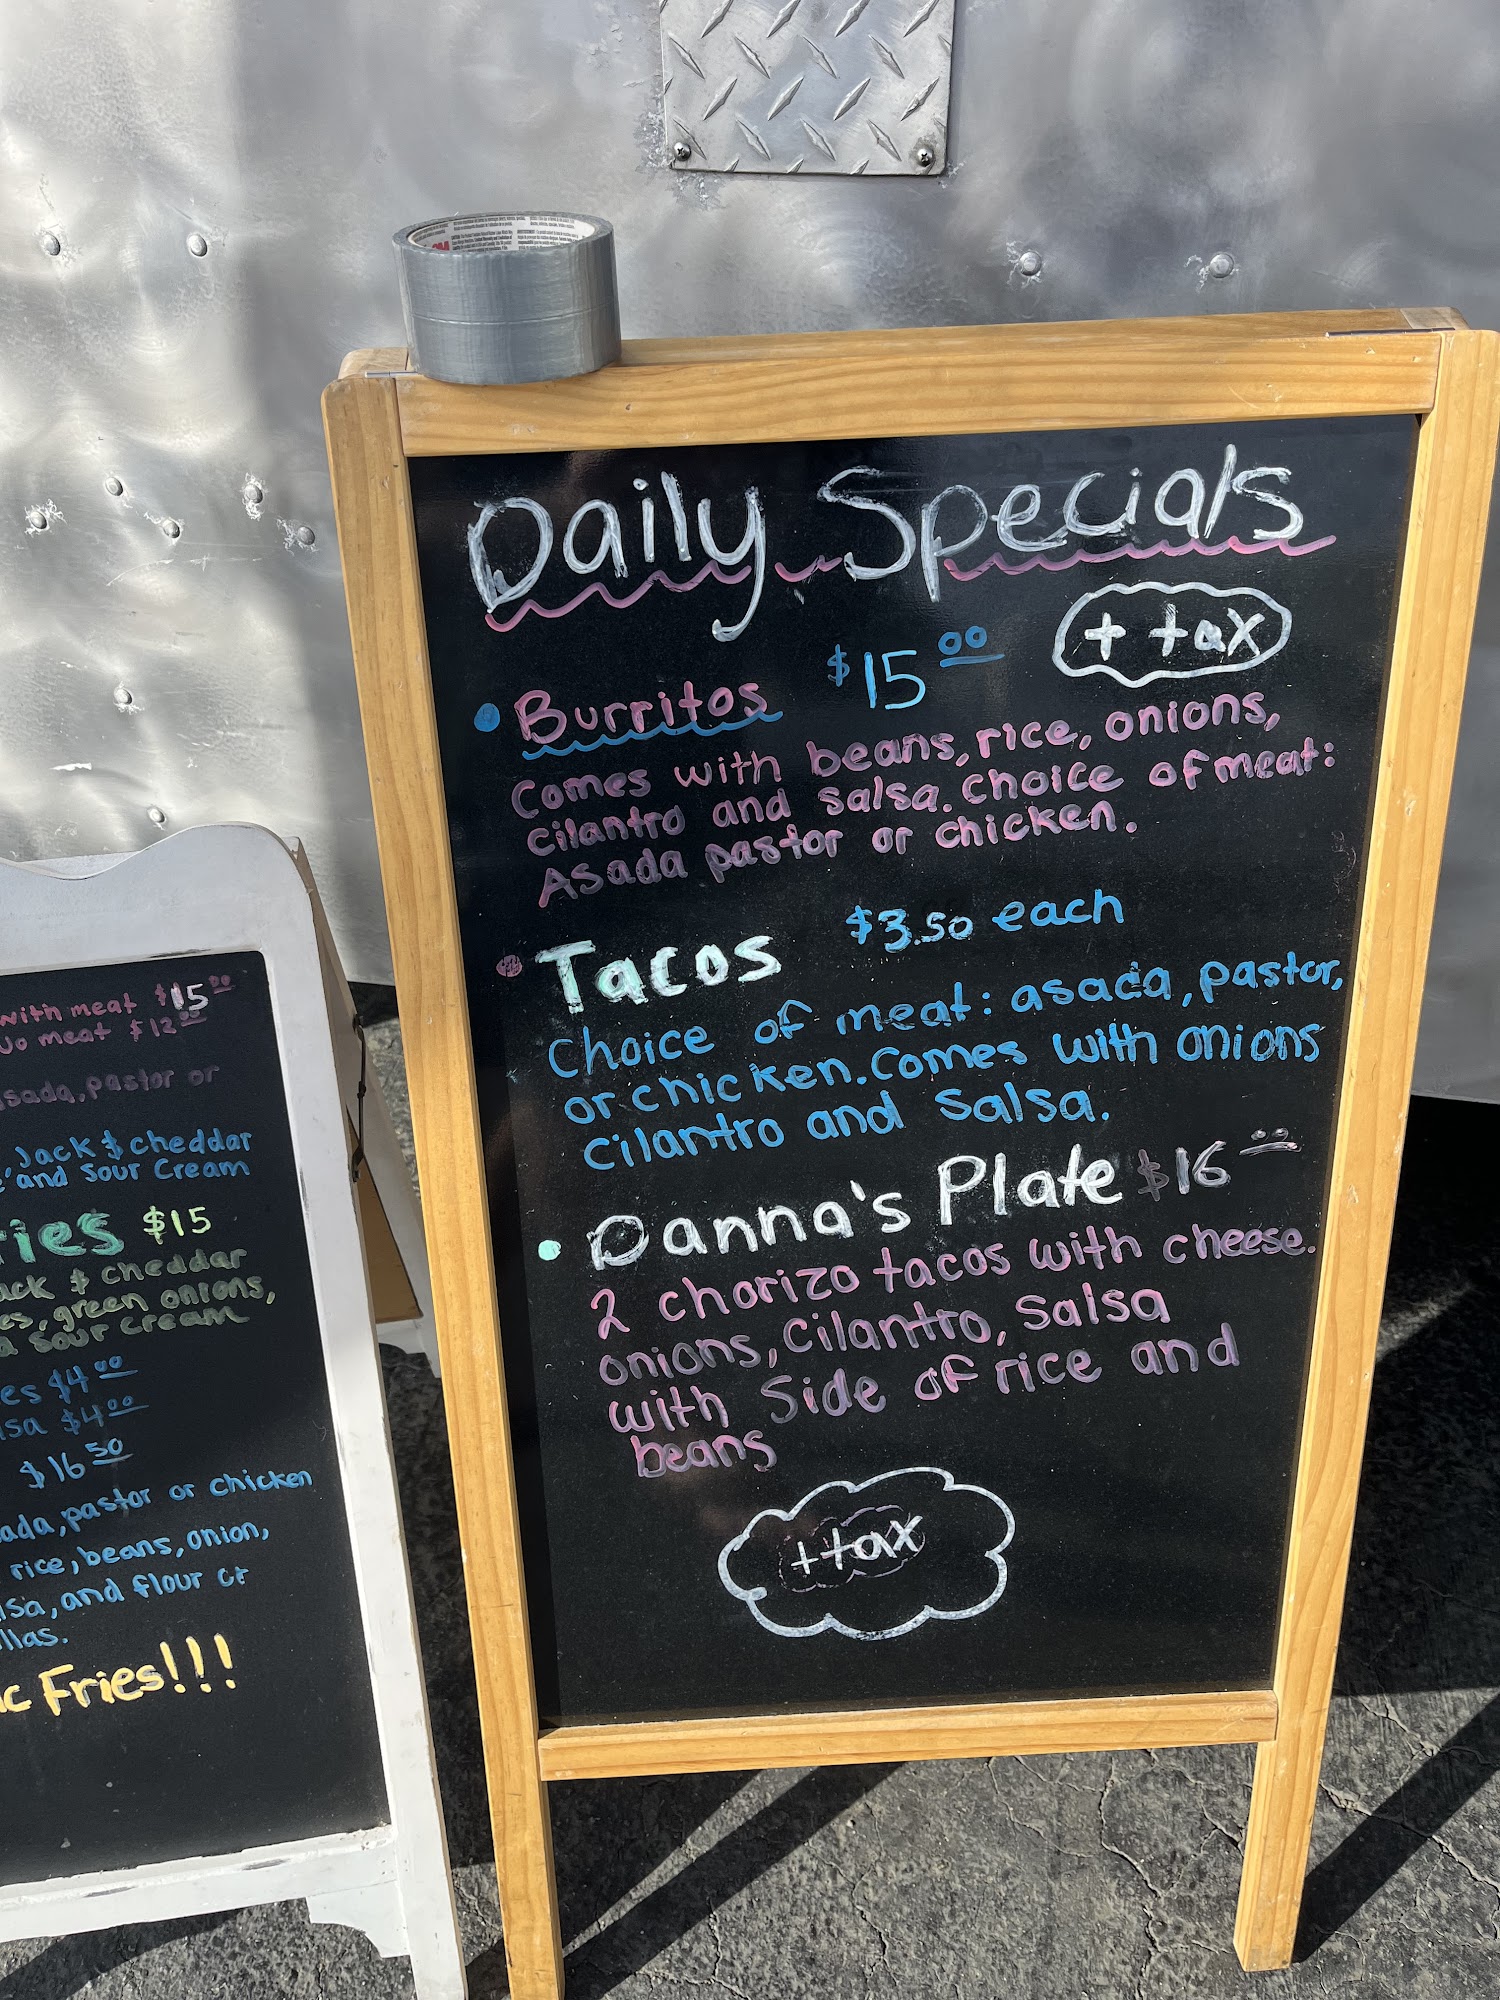 3M
Daily Specials
+ tax
Burritos $15.00
Comes with beans, rice, onions,
Cilantro and salsa. Choice of meat:
Asada pastor or chicken.
Tacos $3.50 each
Choice of meat: asada, pastor,
or chicken. Comes with onions
cilantro and salsa.
Danna's Plate $16.00
2 chorizo tacos with cheese.
onions, cilantro, salsa
with side of rice and
beans
+ tax
with meat $15.00
No meat $12.00
asada, pastor or
, Jack & cheddar
and Sour Cream
ries $15
ack & cheddar
es, green onions,
sour cream
es $4.00
lsa $4.00
$16.50
ada, pastor or chicken
rice, beans, onion,
lsa, and flour or
llas.
c Fries!!!